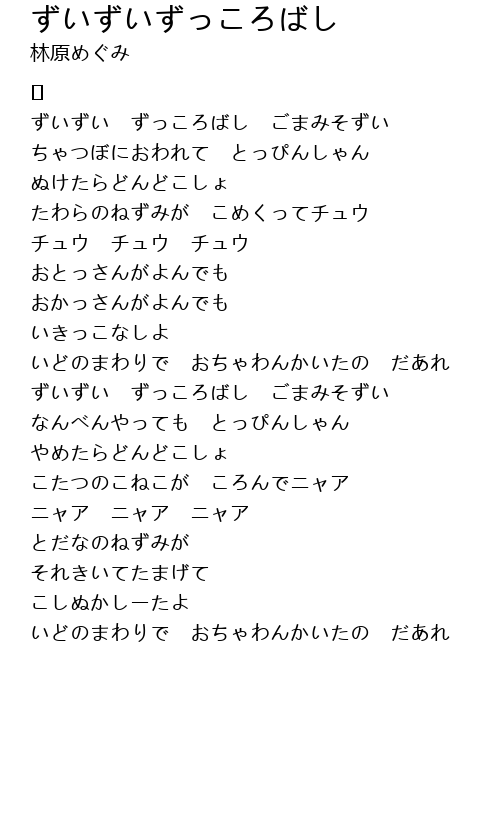 ずいずいずっころばし
林原めぐみ
ずいずい　ずっころばし　ごまみそずい
ちゃつぼにおわれて　とっぴんしゃん
ぬけたらどんどこしょ
たわらのねずみが　こめくってチュウ
チュウ　チュウ　チュウ
おとっさんがよんでも
おかっさんがよんでも
いきっこなしよ
いどのまわりで　おちゃわんかいたの　だあれ
ずいずい　ずっころばし　ごまみそずい
なんべんやっても　とっぴんしゃん
やめたらどんどこしょ
こたつのこねこが　ころんでニャア
ニャア　ニャア　ニャア
とだなのねずみが
それきいてたまげて
こしぬかしーたよ
いどのまわりで　おちゃわんかいたの　だあれ